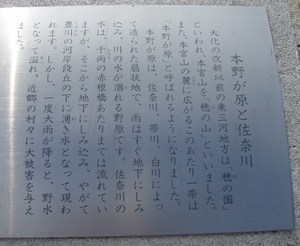 本野が原と佐奈川
大化の改新以前の東三河地方は「穂の国」
といわれ、本宮山を「穂の山」といいました。
また、本宮山の麓に広がるこのあたり一帯は
「本野が原」と呼ばれるようになりました。
本野が原は、佐奈川、帯川、白川によっ
て造られた扇状地で、雨はすぐ地下にしみ
込み、川の水が涸れる野原です。佐奈川の
水は、千両の赤根橋あたりまでは流れてい
ますが、そこから地下にしみ込み、やがて
豊川の河岸段丘の下に湧き水となって現わ
れます。しかし、一度大雨が降ると、野水
となって溢れ、近郷の村々に大被害を与え
ました。